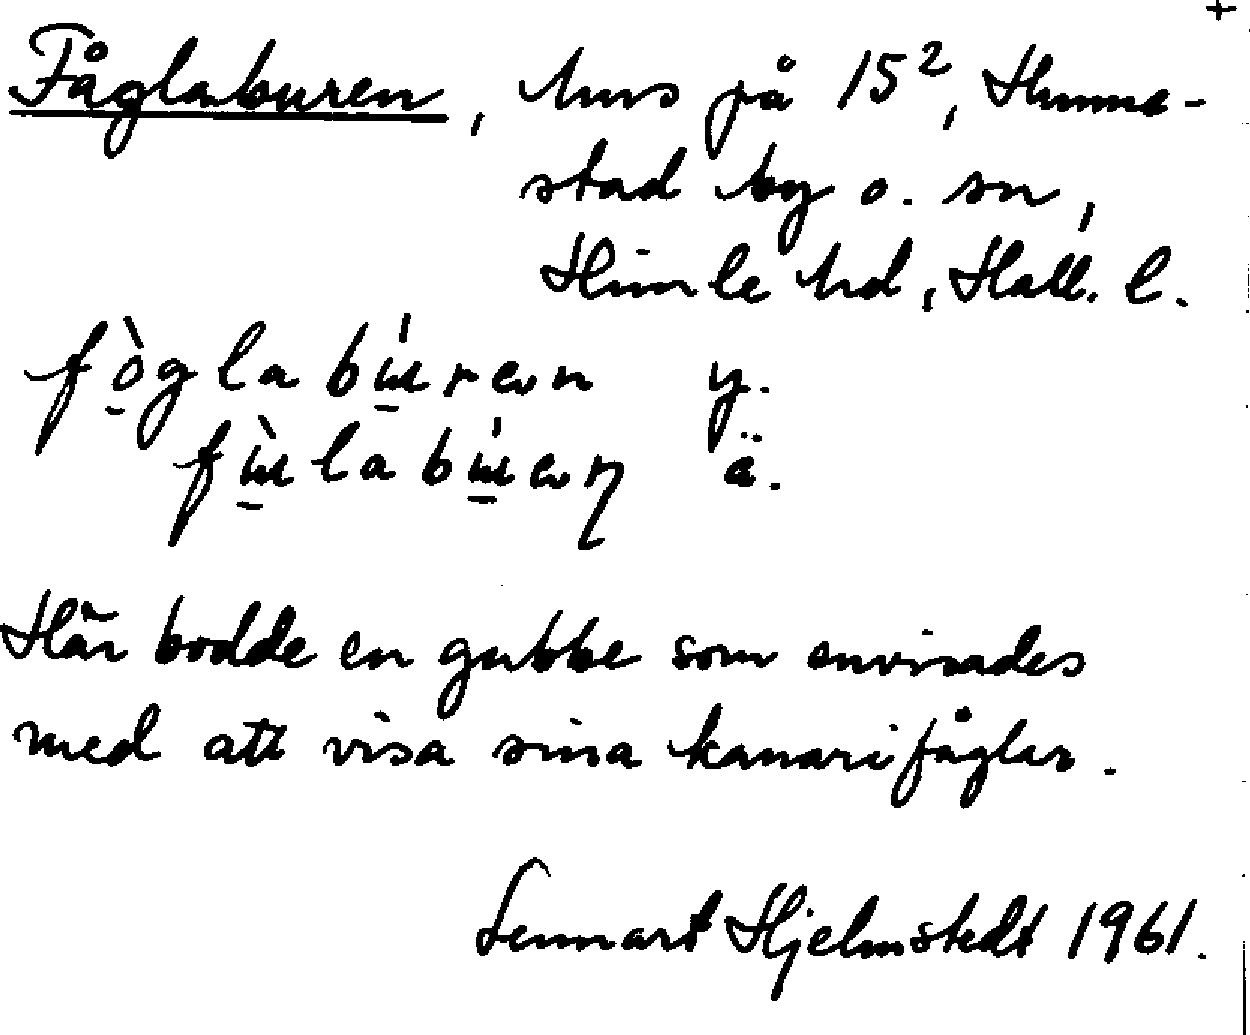 +
Fåglaburen, hus på 15², Hunne-
stad by o. sn,
Himle hd, Hall. l.
fò̱glabɯ̱́rən y.
fɯ̱̀labɯ̱́əɳ ä.
Här bodde en gubbe som
med att visa sina kanarifåglar.
Lennart Hjelmstedt 1961.